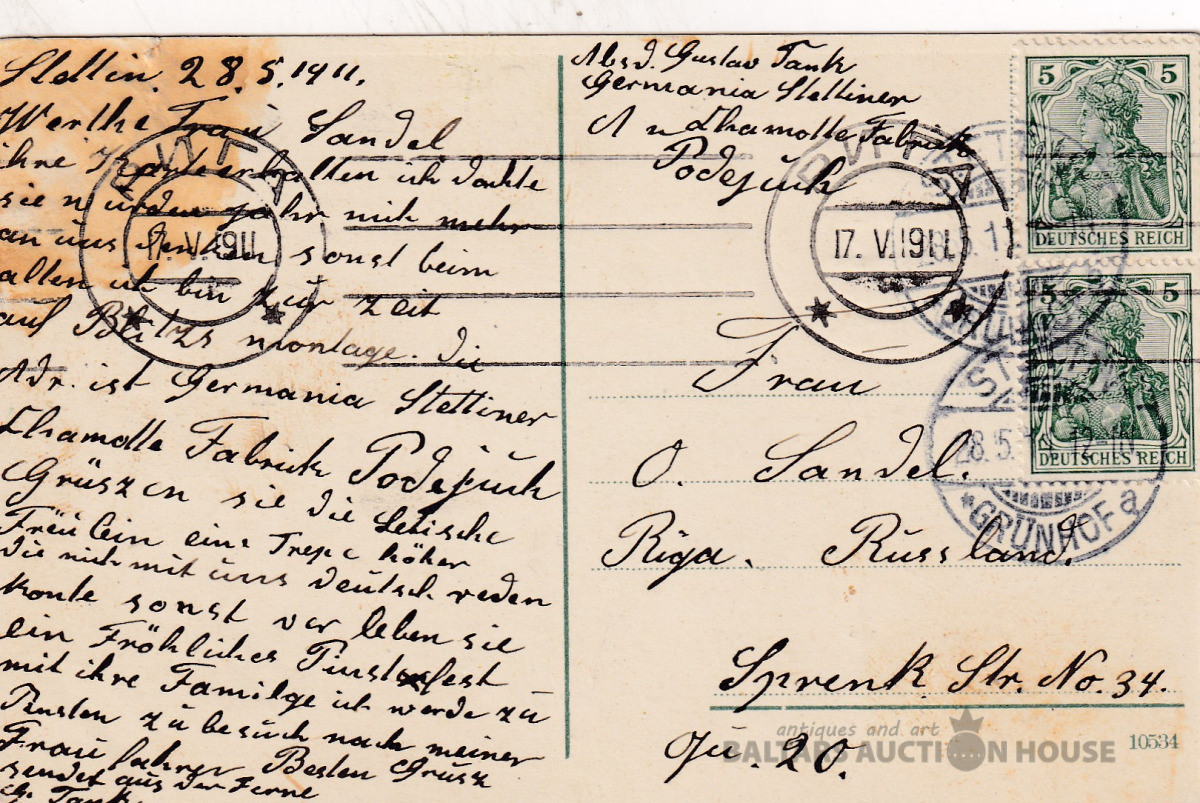 Stettin. 28.5.1911.
Werthe Frau Sandel
ihre Karte erhalten ich dachte
sie würden gahr nich mehr
an uns denken sonst beim
alten ich bin zur zeit
auf Blitzs montage. die
Adr. ist Germania Stettiner
Chamotte Fabrick Podejuch
Grüszen sie die Letische
Fräulein eine Trepe höher
die nich mit uns deutsch reden
konte sonst ver leben sie
ein Fröhliches Pinstenfest
mit ihre Familge ich werde zu
Pinsten zu besuch nach meiner
Frau fahren Besten Grusz
sendet aus der Ferne
G. Tank
Absd. Gustav Tank
Germania Stettiner
A u Chamotte Fabrick
Podejuch
Frau
O. Sandel.
Riga. Russland.
Sprenk Str. No. 34.
Qu. 20.
17. V. 1911
17. V. 1911
5 5
DEUTSCHES REICH
5 5
DEUTSCHES REICH
28.5.
*GRÜNHOF a
antiques and art
BALTARS AUCTION HOUSE
10534